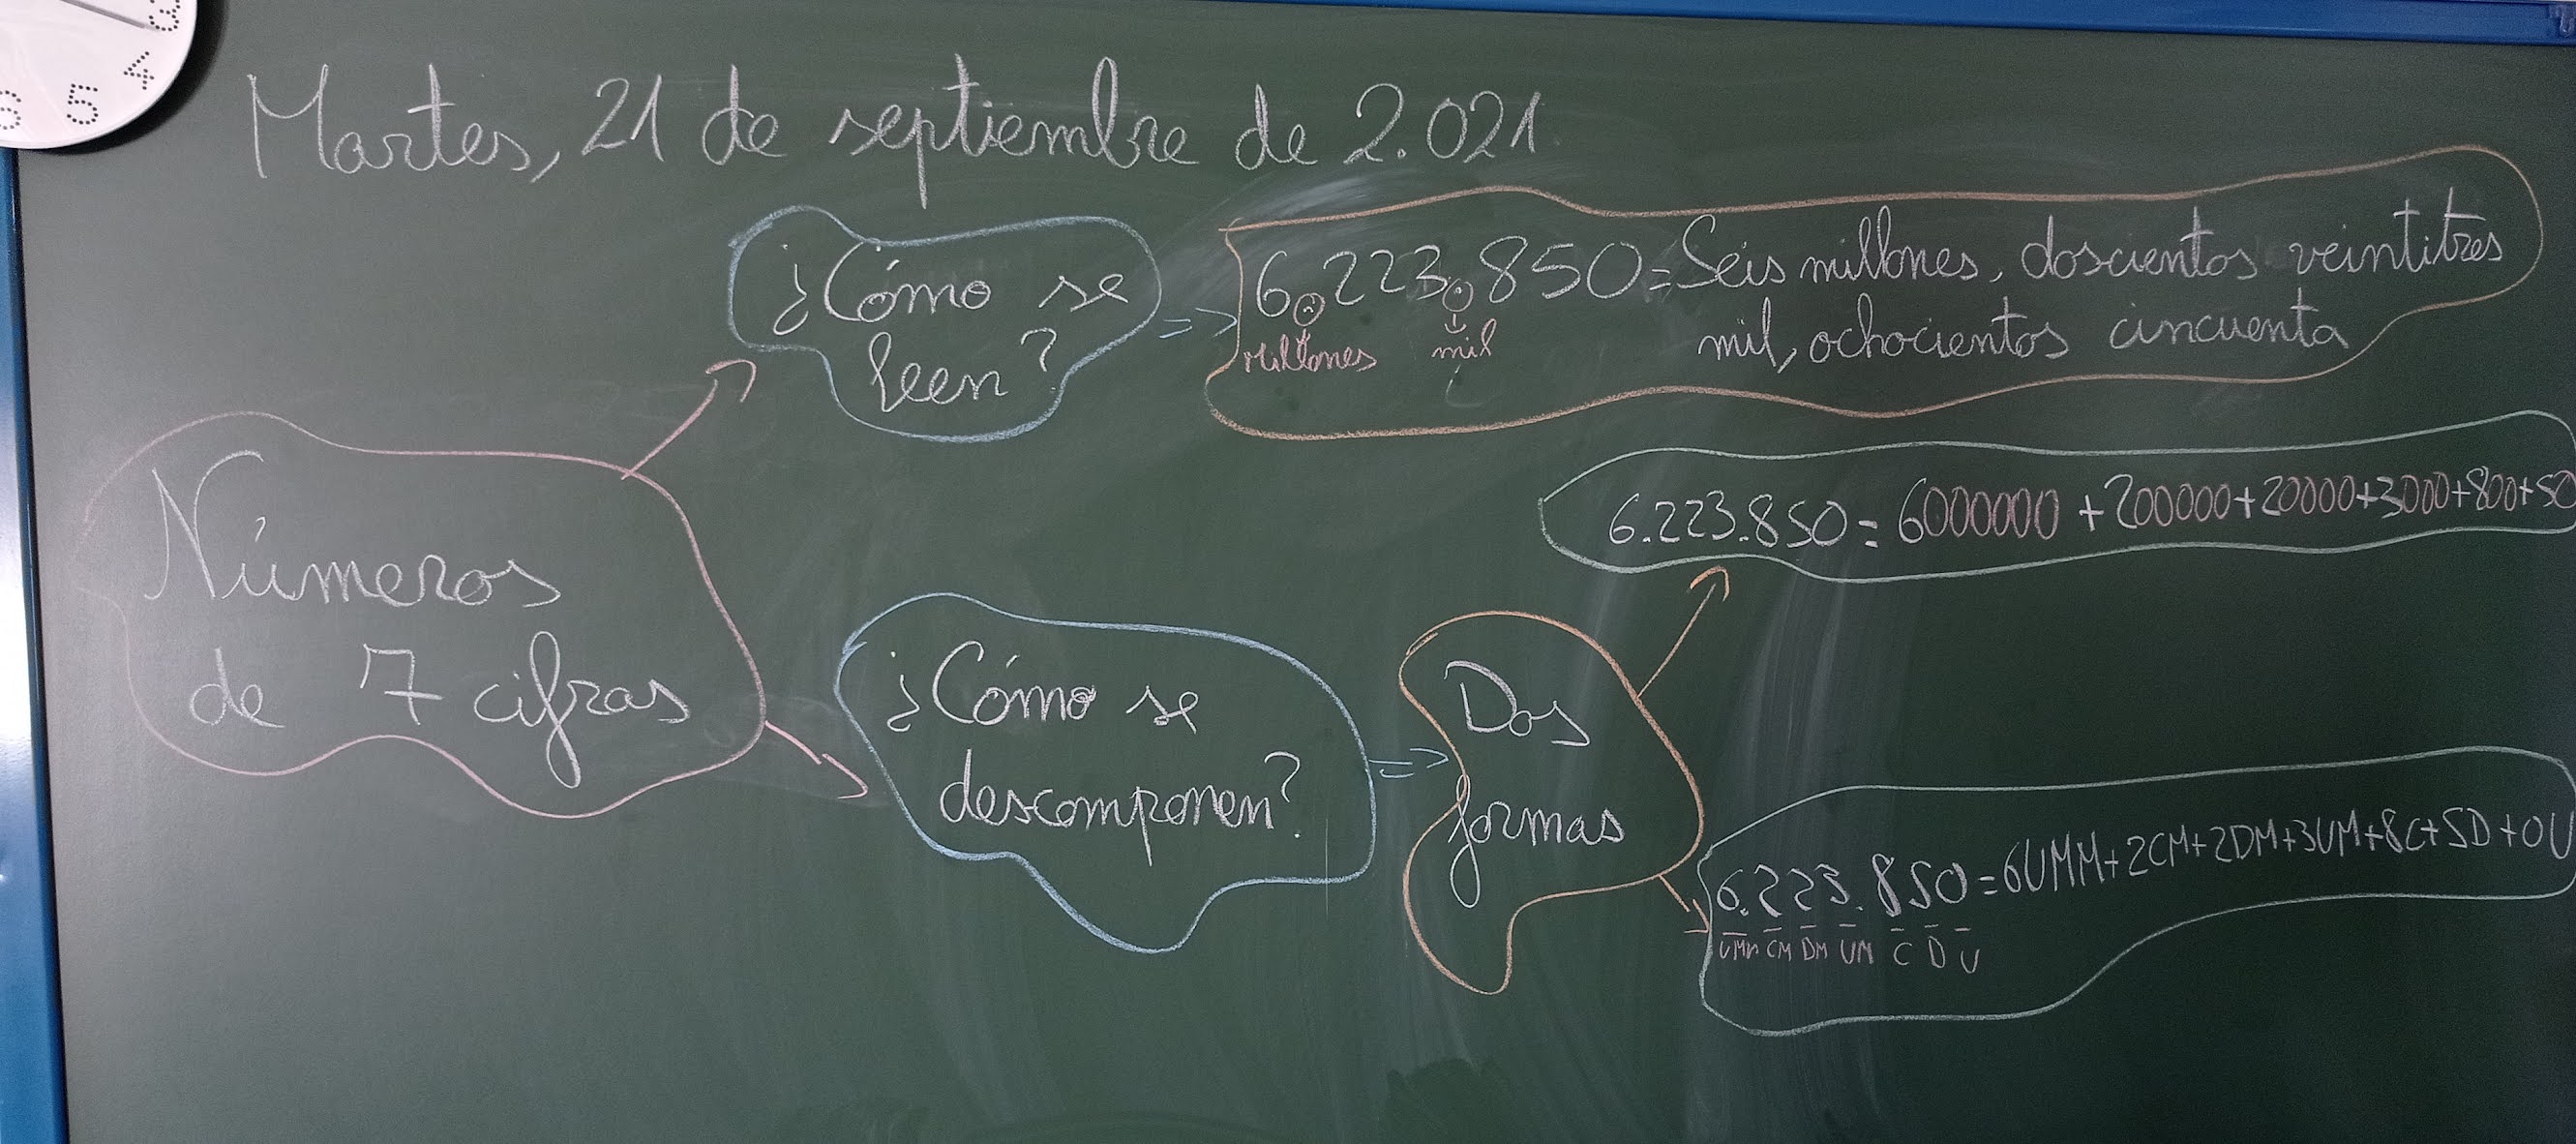 3
4
5
6
Martes, 21 de septiembre de 2.021.
¿Cómo se
leen?
6.223.850=Seis millones, doscientos veintitres
Millones mil
mil, ochocientos cincuenta
Números
de 7 cifras
6.223.850=6000000+200000+20000+3000+800+50
¿Cómo se
descomponen?
Dos
formas
6.223.850=6UMM+2CM+2DM+3UM+8C+5D+0U
UMM CM DM UM C D U